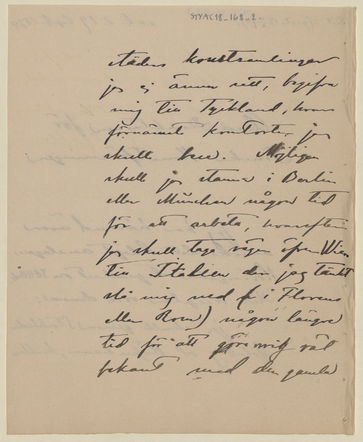 städers konstsamlingar
jag ej ännu sett, begifva
mig till Tyskland, hvars
förnämsta konstorter jag
skall bese. Möjligen
skall jag stanna i Berlin
eller München någon tid
för att arbeta, hvarefter
jag skall taga vägen öfver Wien
till Italien der jag tänkt
slå mig ned (i Florens
eller Rom) någon längre
tid för att göra mig väl
bekant med den gamla